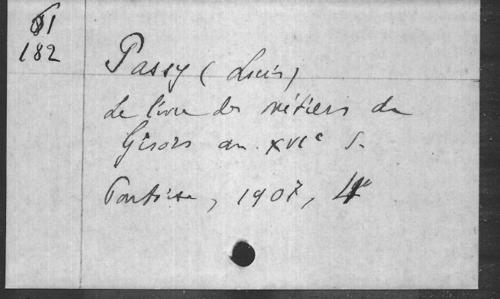 182
Passy (Louis)
Le livre des métiers de
Gisors au XVIe S.
Pontoise, 1907, 4°